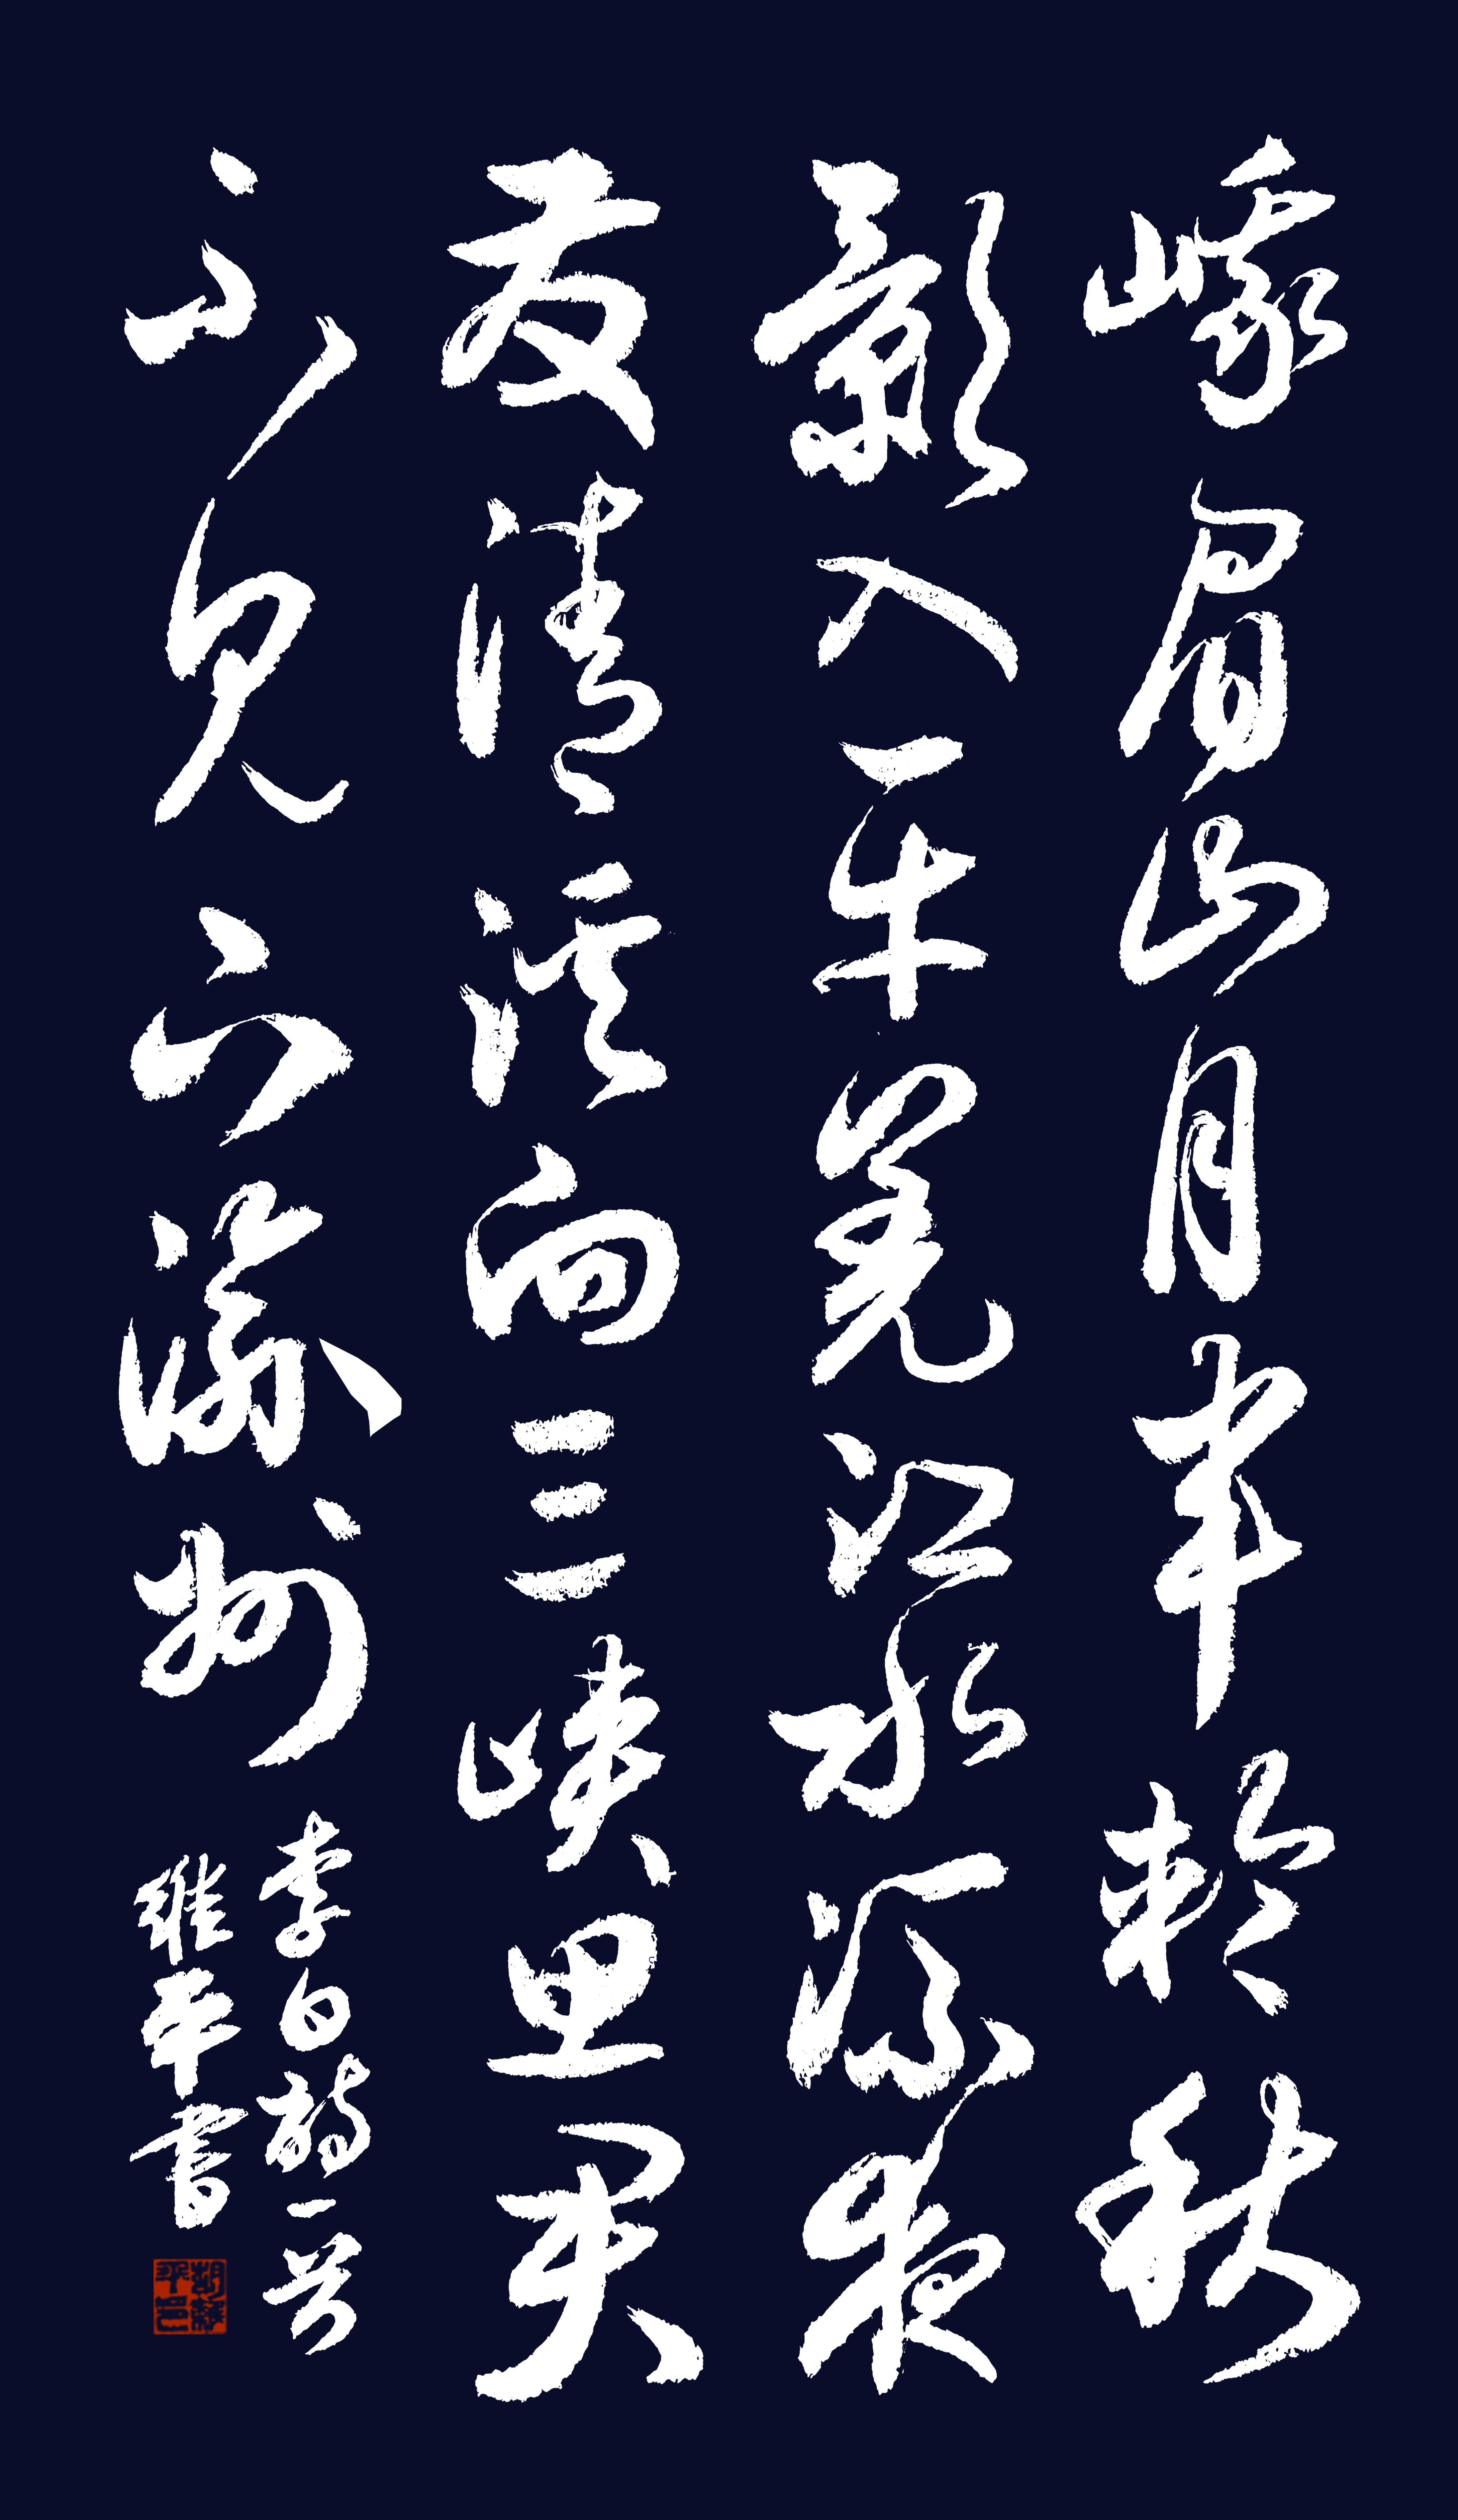 峨眉山月半輪秋
影入平羌江水流夜
發清溪向三峽思君
不見下渝州
李白詩一首
書